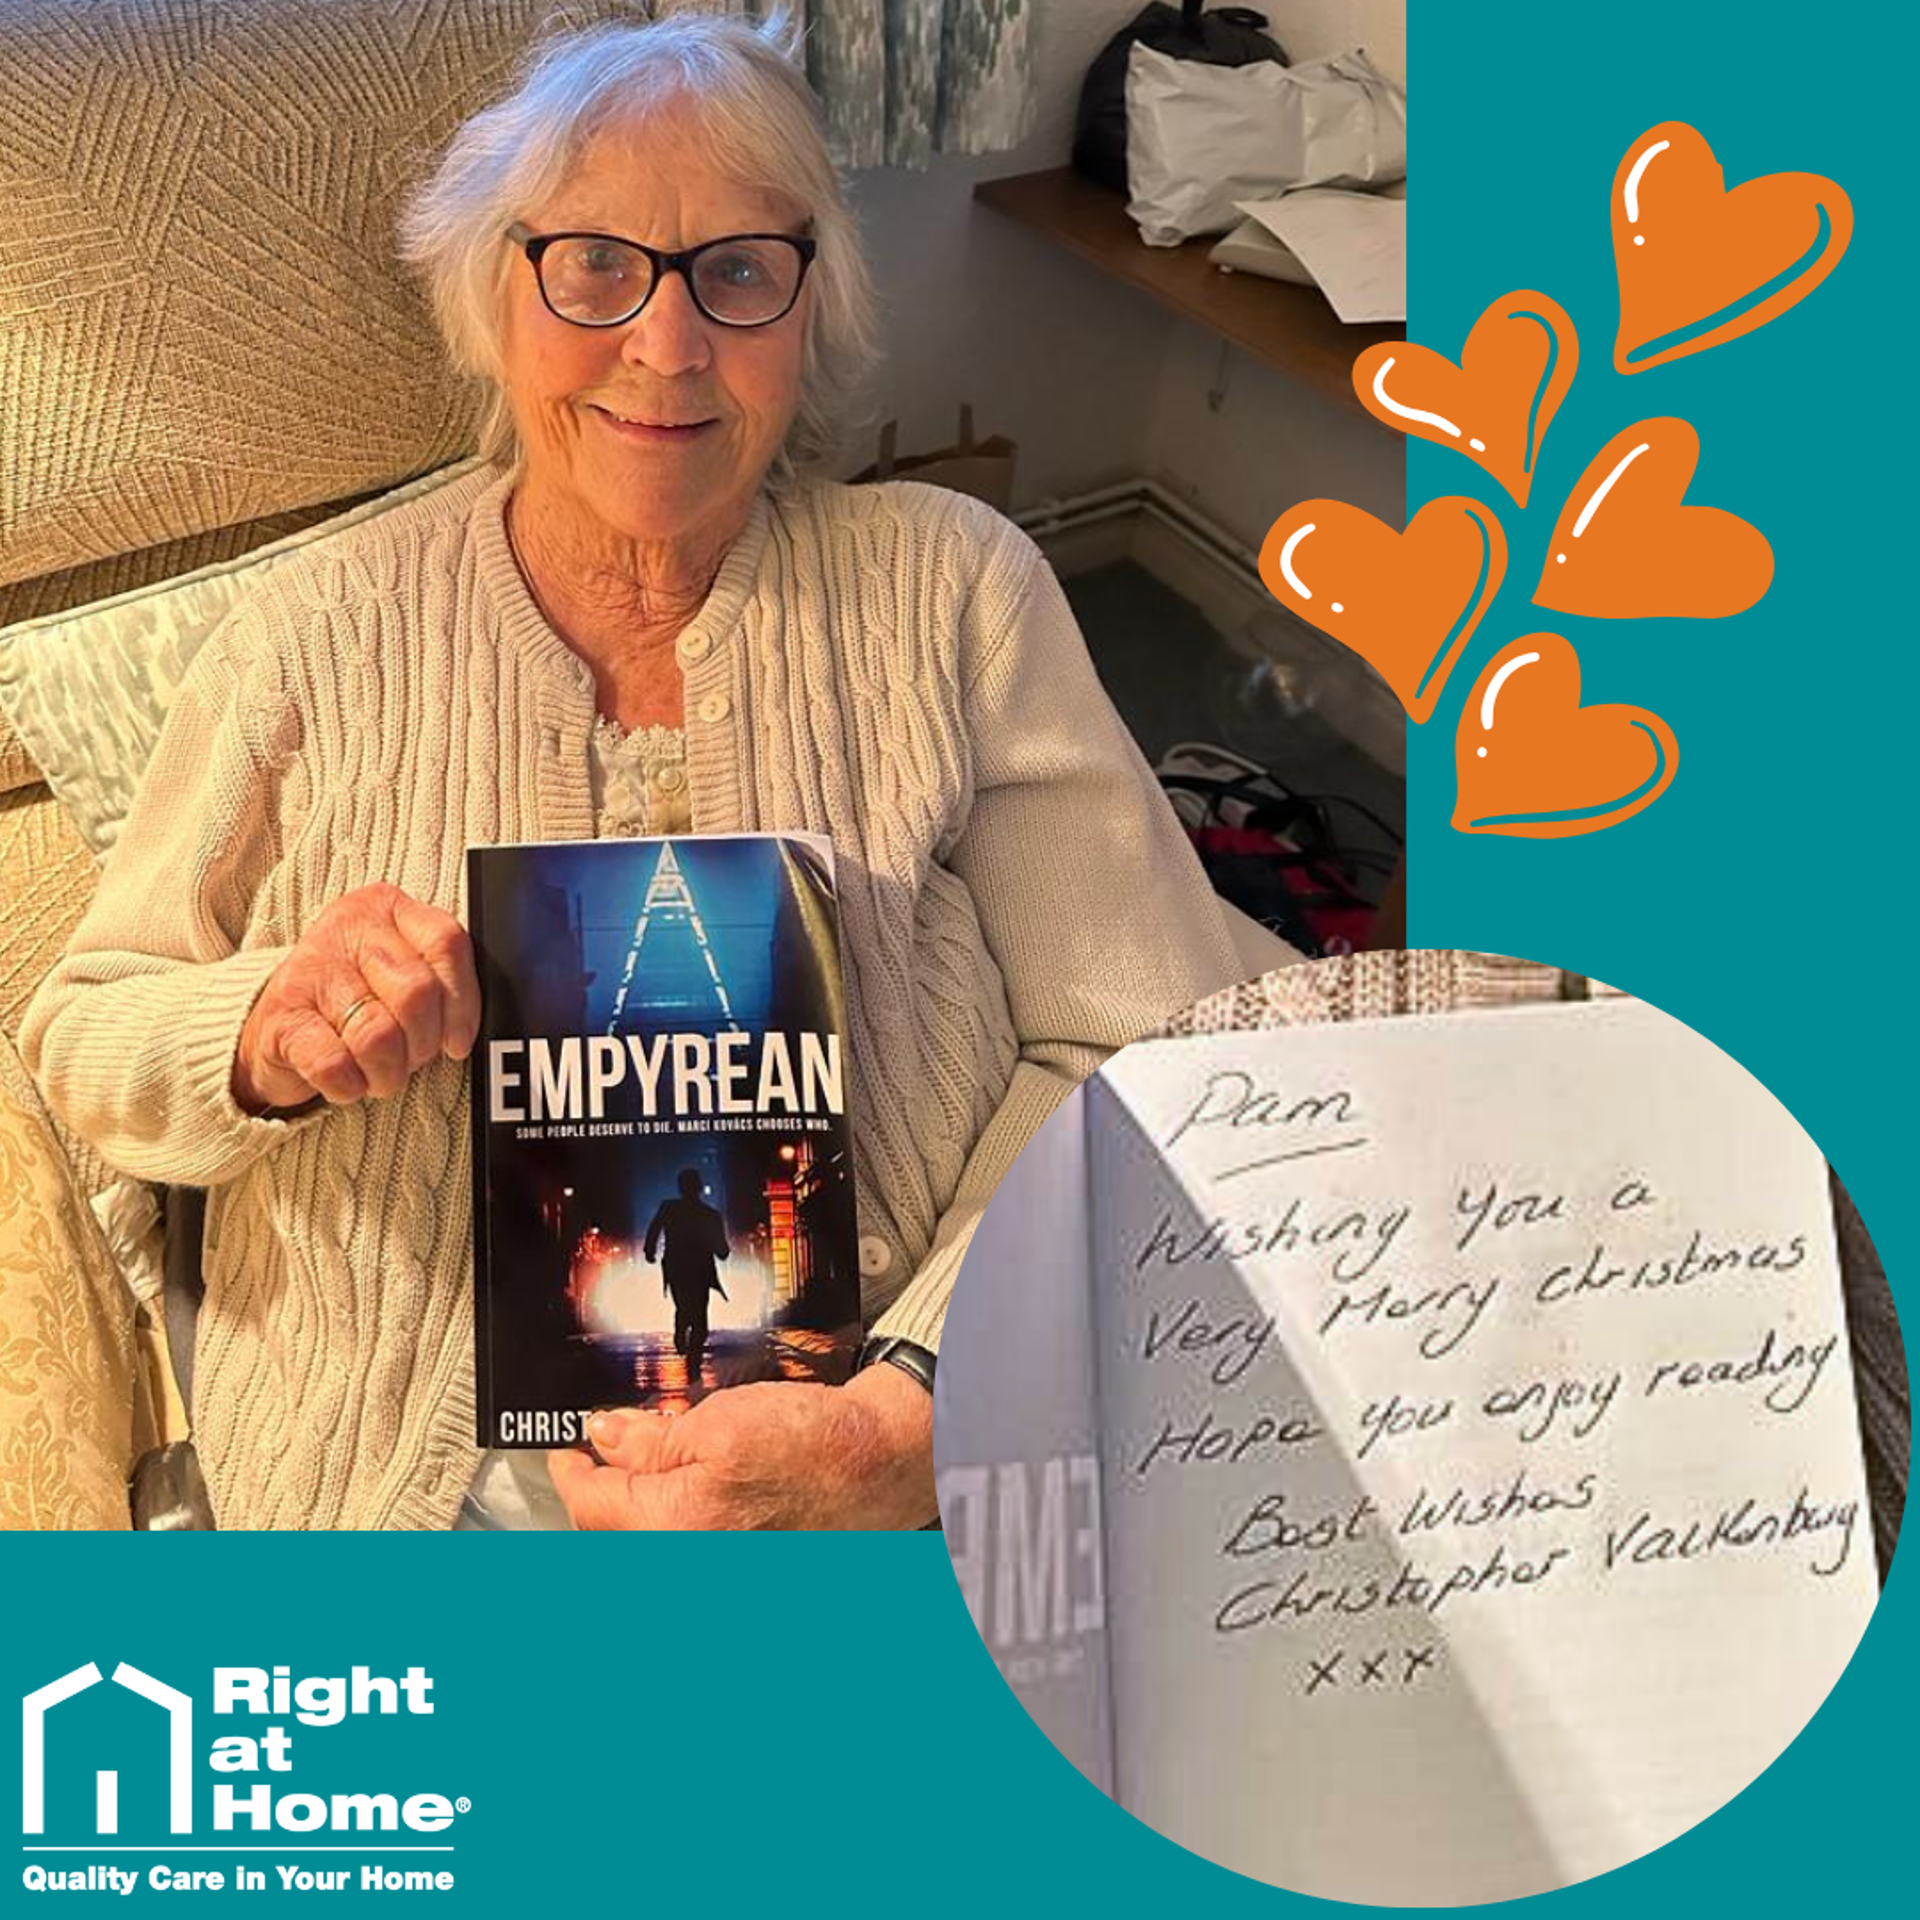 EMPYREAN
SOME PEOPLE DESERVE TO DIE. MARCI KOVÁCS CHOOSES WHO.
CHRIST
Pam
Wishing you a
Very Merry Christmas
Hope you enjoy reading
Best Wishes
Christopher Valkenburg
x x x
Right
at
Home®
Quality Care in Your Home